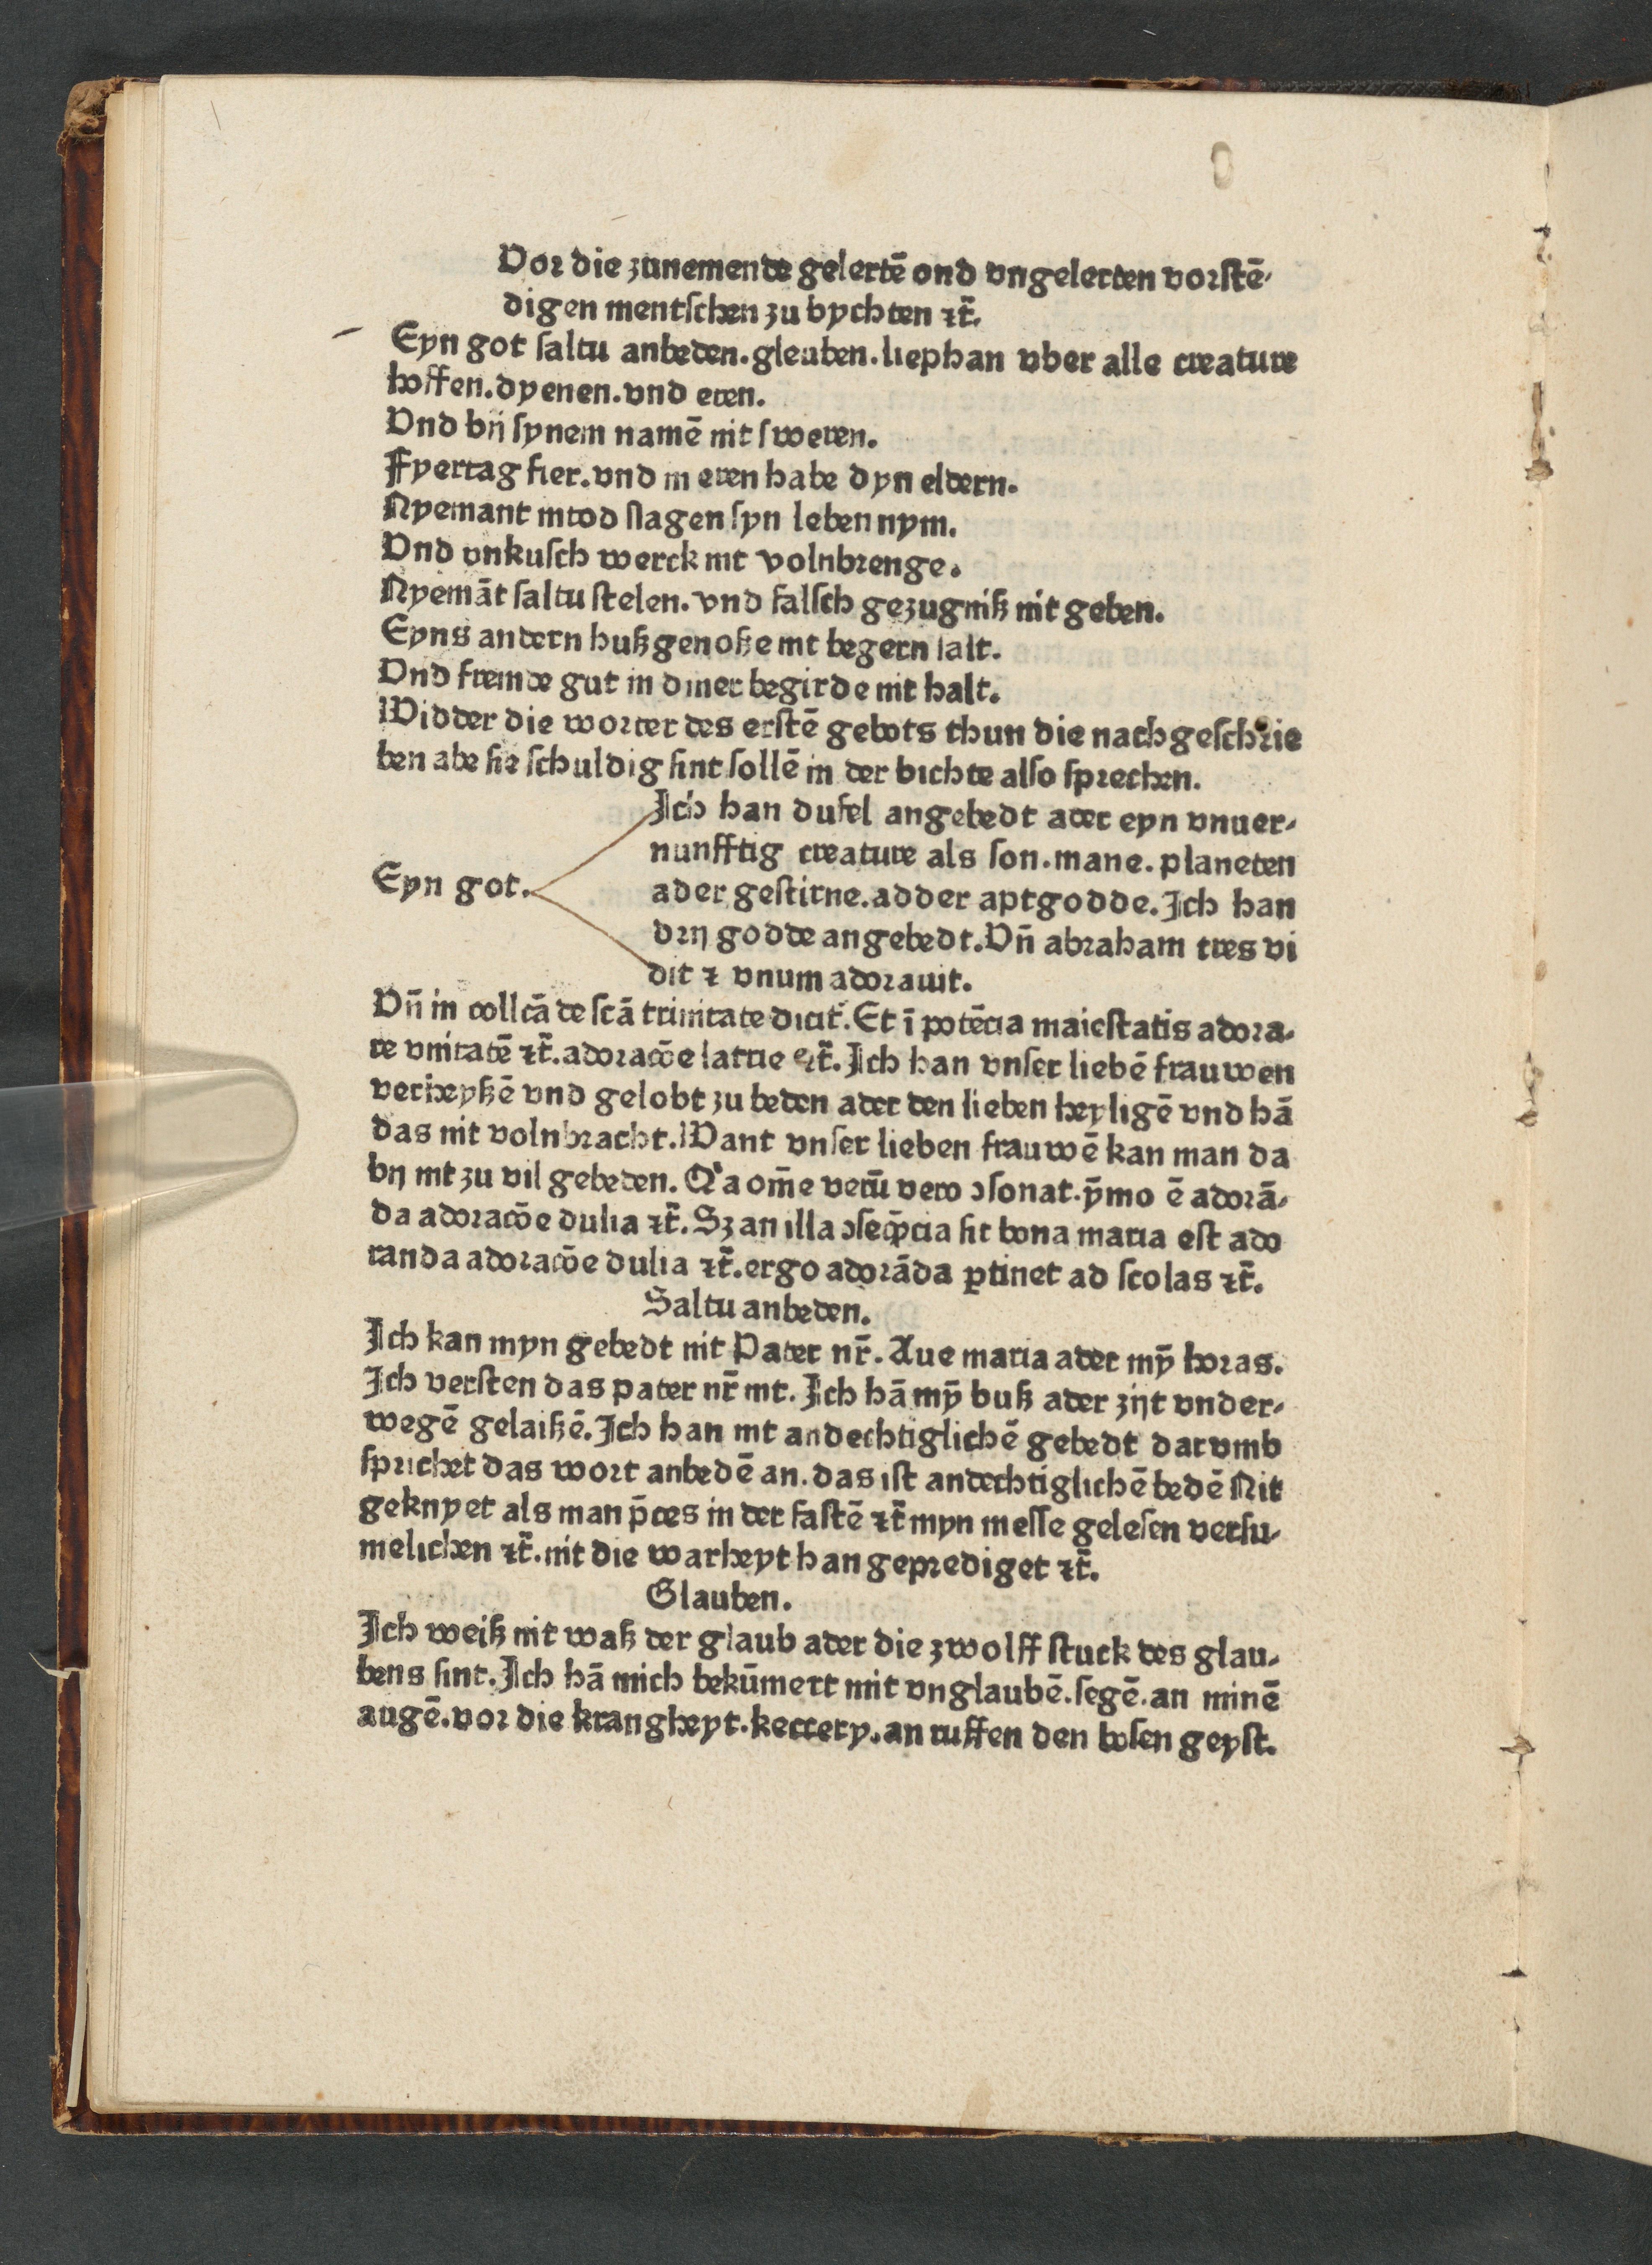 Vor die zunemende gelertē ond vngelerten vorstē-
digen mentschen zu bychten ⁊c̄.
Eyn got saltu anbeden. gleuben. liephan vber alle creature
hoffen. dyenen. vnd eren.
Vnd bij synem namē nit sweren.
Ffyertag fier. vnd in eren habe dyn eldern.
Nyemant intod slagen syn leben nym.
Vnd vnkusch werck nit volnbrenge.
Nyemāt saltu stelen. vnd falsch gezugniß nit geben.
Eyns andern hußgenoße nit begern salt.
Vnd fremde gut in diner begirde nit halt.
Widder die worter des erstē gebots thun die nachgeschrie
ben abe sie schuldig sint sollē in der bichte also sprechen.
Ich han dufel angebedt ader eyn vnuer-
nunfftig creature als son. mane. planeten
Eyn got. ader gestirne. adder aptgodde. Ich han
drij godde angebedt. Vn̄ abraham tres vi
dit ⁊ vnum adorauit.
Vn̄ in collcā de scā trinitate dicit̄. Et ī potēcia maiestatis adora-
re vnitatē ⁊c̄. adoracōe latrie ⁊c̄. Ich han vnser liebē frauwen
verheyßē vnd gelobt zu beden ader den lieben heyligē vnd hā
das nit volnbracht. Want vnser lieben frauwē kan man da
bij nit zu vil gebeden. Qͣa om̄e verū vero ↄsonat. ȳmo ē adorā-
da adoracōe dulia ⁊c̄. Sꝫ an illa ↄseq̄ncia sit bona maria est ado
randa adoracōe dulia ⁊c̄. ergo adorāda ꝑtinet ad scolas ⁊c̄.
Saltu anbeden.
Ich kan myn gebedt nit Pater nr̄. Aue maria ader mȳ horas.
Ich versten das pater nr̄ nit. Ich hā mȳ buß ader zijt vnder-
wegē gelaißē. Ich han nit andechtiglichē gebedt darvmb
sprichet das wort anbedē an. das ist andechtiglichē bedē Nit
geknyet als man p̄ces in der fastē ⁊c̄ myn messe gelesen versu-
melichen ⁊c̄. nit die warheyt han geprediget ⁊c̄.
Glauben.
Ich weiß nit waß der glaub ader die zwolff stuck des glau-
bens sint. Ich hā mich bekūmert mit vnglaubē. segē. an minē
augē. vor die krangheyt. kettery. an ruffen den bosen geyst.